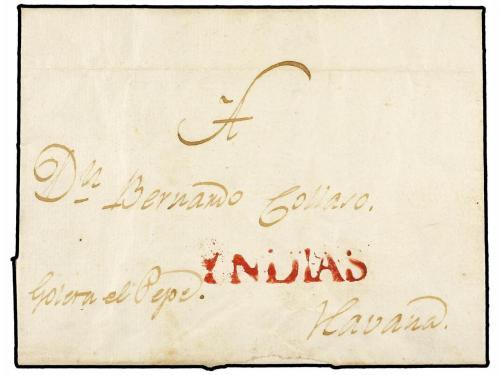 A
Dn. Bernardo Collaso.
YNDIAS
Goleta el Pepe.
Havana.